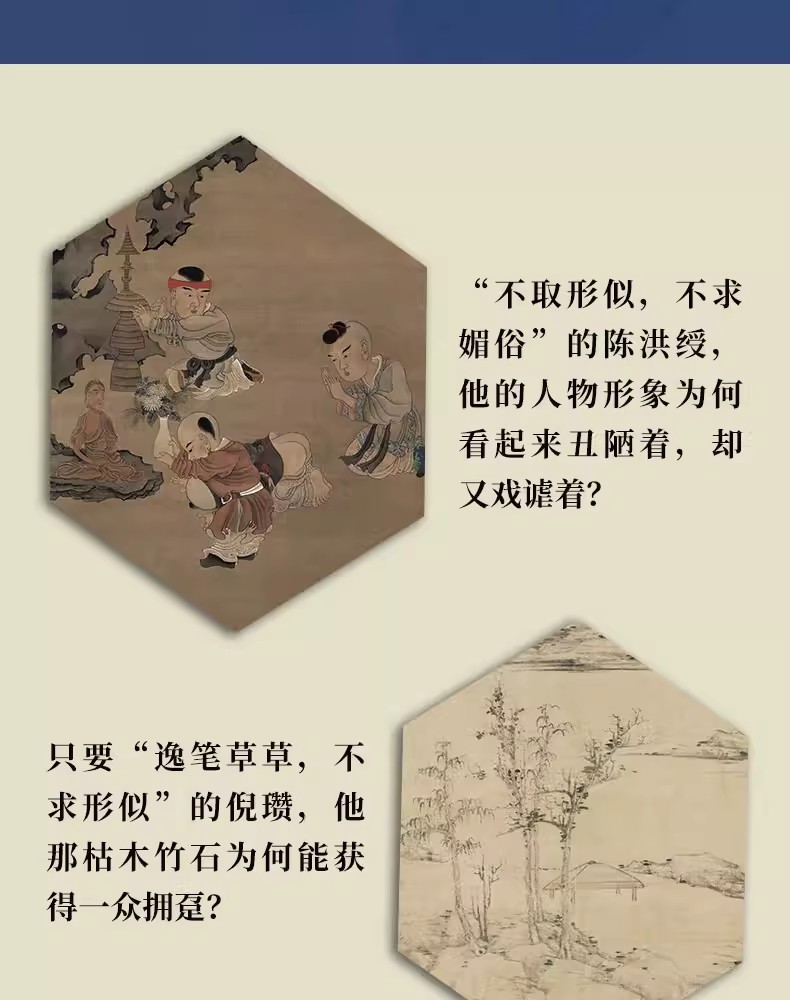 “不取形似，不求
媚俗”的陈洪绶，
他的人物形象为何
看起来丑陋着，却
又戏谑着？
只要“逸笔草草，不
求形似”的倪瓒，他
那枯木竹石为何能获
得一众拥趸？